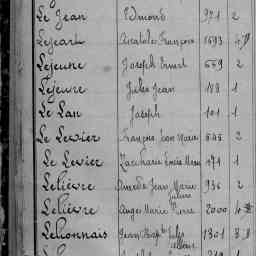 Le Jean Edmond 971 2
Lejeart Anatole François 1693 4
Lejeune Joseph Ernest 559 2
Lejeune Jules Jean 188 1
Le Lan Joseph 101 1
Le Levier François Jean Marie 545 2
Le Levier Zacharie Louis Marie 171 1
Lelièvre Amédée Jean Marie 936 2
Julien
Lelièvre Ange Marie Pierre 2000 4
Lelionnais Jean Bapte Jules 1301 3